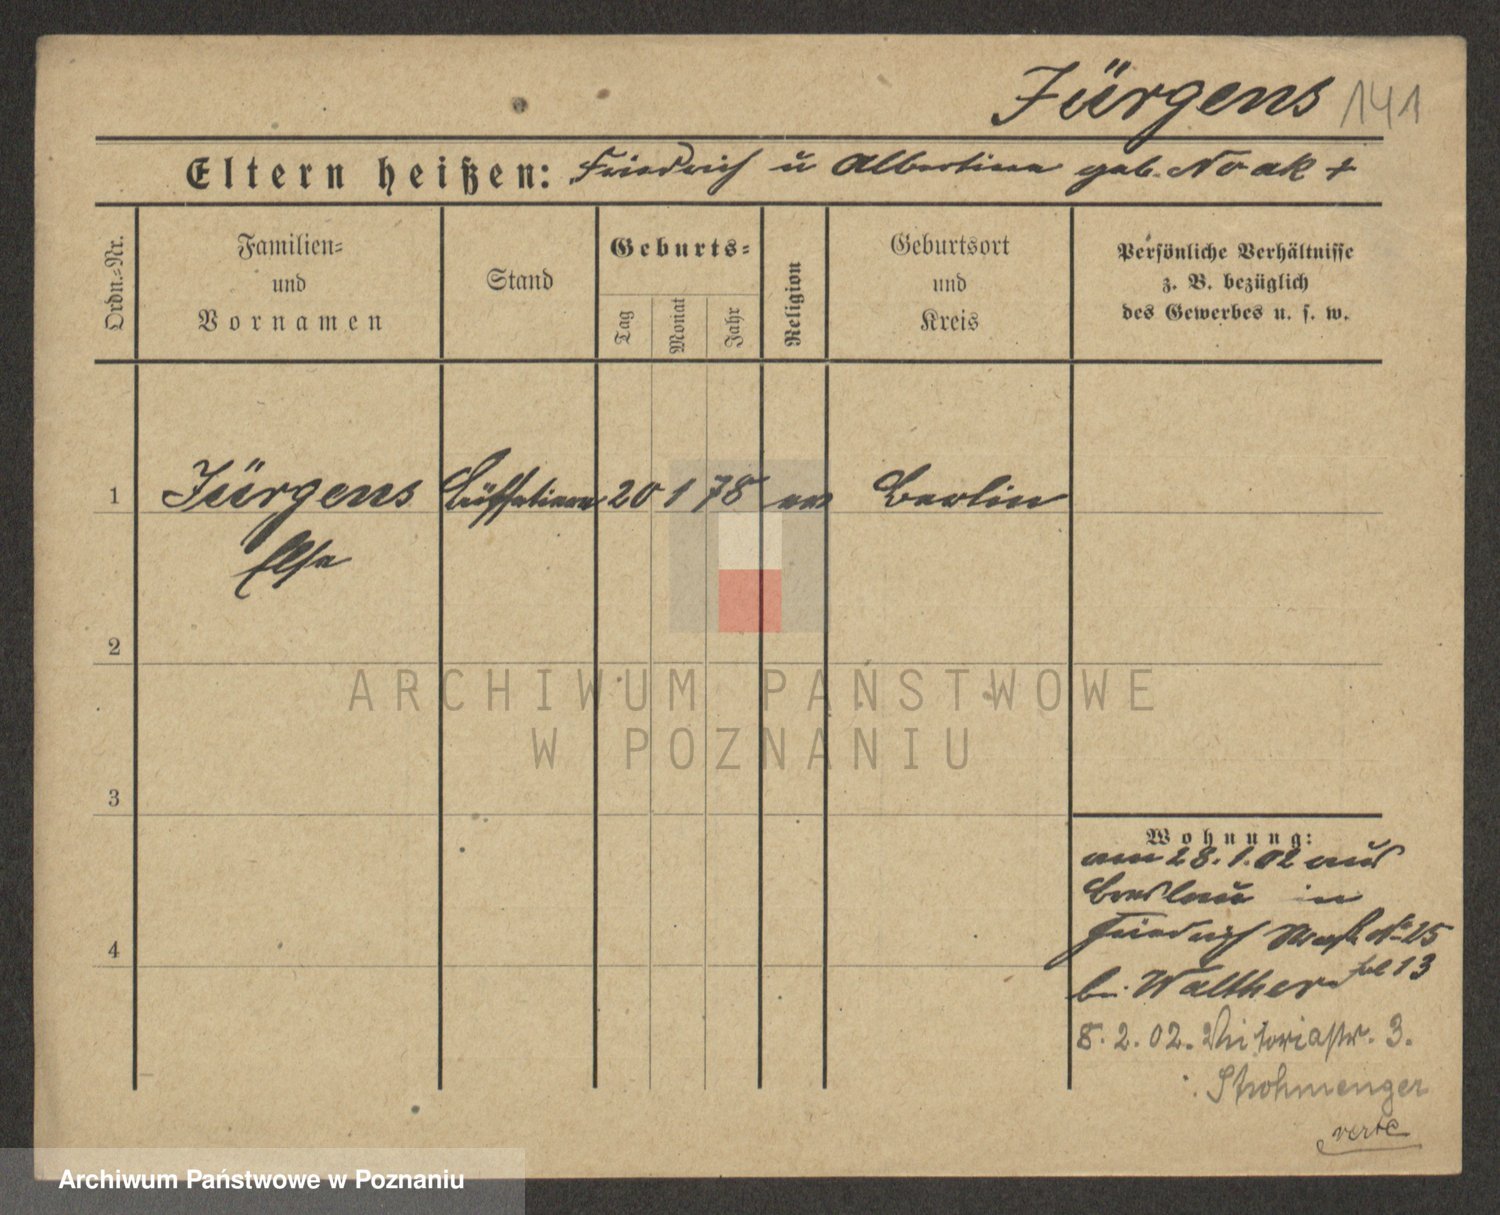 Jürgens 141
Eltern heißen: Friedrich u Albertine geb. Noak +
Ordn.-Nr.
Familien-
und
Vornamen
Stand
Geburts-
Tag
Monat
Jahr
Religion
Geburtsort
und
Kreis
Persönliche Verhältnisse
z. B. bezüglich
des Gewerbes u. s. w.
1 Jürgens Büffetiere 20 1 78 ev Berlin
Else
2
ARCHIWUM PAŃSTWOWE
W POZNANIU
3
4
Wohnung:
am 28.1.02 aus
Breslau in
Friedrich No 25
bei Walther 13
8.2.02. Viktoriastr. 3.
Strohmenger
verte
Archiwum Państwowe w Poznaniu